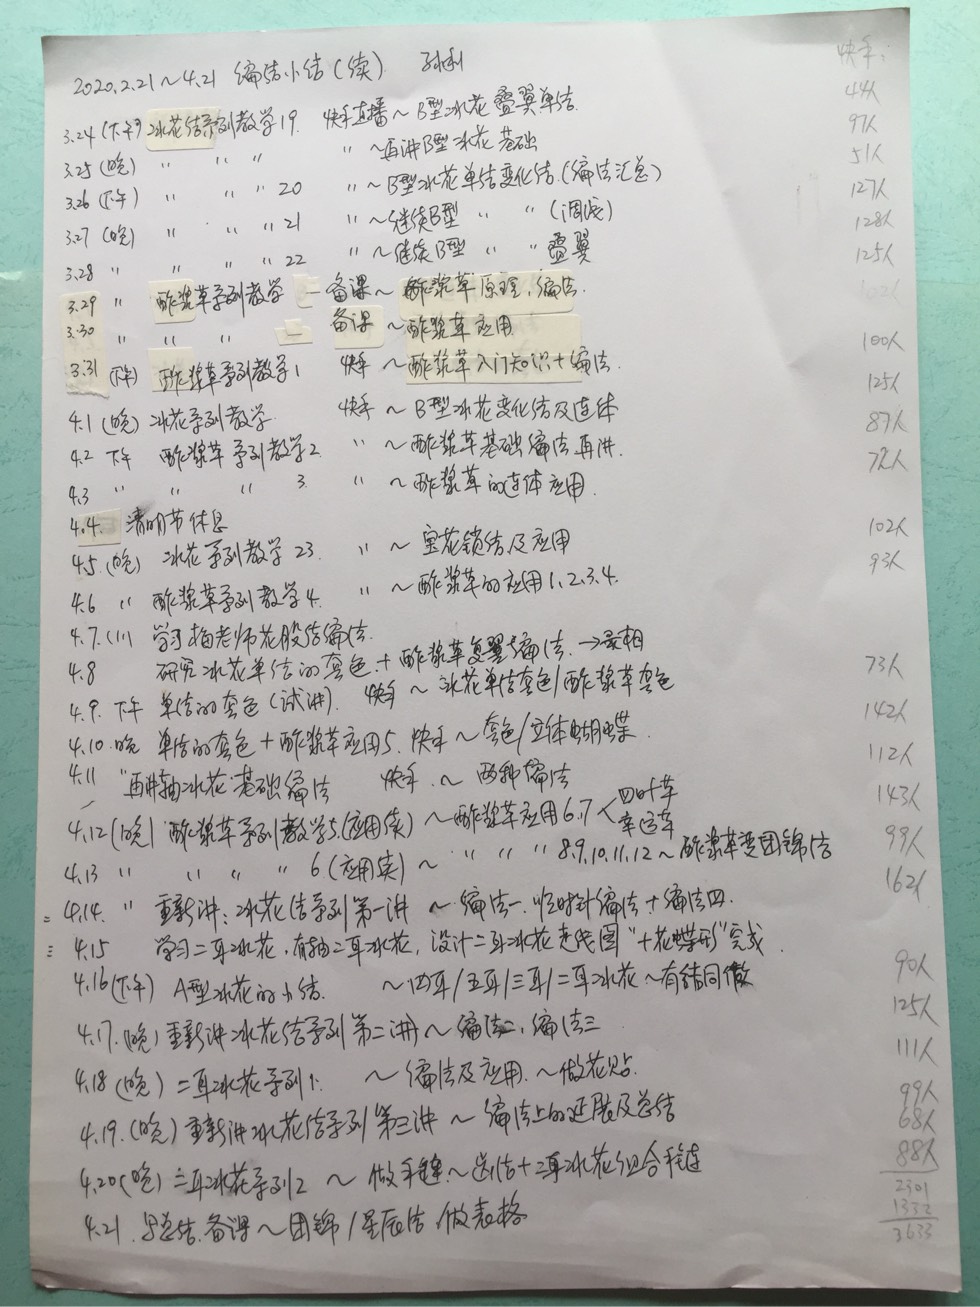 2020.2.21～4.21 编结小结(续) 孙利
快手:
3.24(下午) 冰花结系列教学19. 快手直播～B型冰花叠翼单结. 44人
3.25(晚) 〃 〃 〃 〃～再讲B型冰花基础 97人
3.26(下午) 〃 〃 〃 20 〃～B型冰花单结变化结.(编法汇总) 51人
3.27(晚) 〃 〃 〃 21 〃～继续B型 〃 〃 127人
3.28 〃 〃 〃 〃 22 〃～继续B型 〃 〃 叠翼 128人
125人
3.29 〃 酢浆草系列教学 — 备课～酢浆草原理、编法. 102人
3.30 〃 〃 〃 — 备课～酢浆草应用
3.31(下午) 酢浆草系列教学1 快手～酢浆草入门知识+编法. 100人
4.1(晚) 冰花系列教学 快手～B型冰花变化结及连体 125人
4.2 下午 酢浆草系列教学2 〃～酢浆草基础编法再讲. 87人
4.3 〃 〃 〃 3. 〃～酢浆草的连体应用. 72人
4.4. 清明节休息
4.5.(晚) 冰花系列教学23. 〃～宝花锁结及应用 102人
4.6 〃 酢浆草系列教学4. 〃～酢浆草的应用1.2.3.4. 93人
4.7. 学习梅老师花股结编法.
4.8 研究冰花单结的套色.+酢浆草复翼编法.→亮相
4.9. 下午 单结的套色(试讲). 快手～冰花单结套色/酢浆草套色 73人
4.10.晚 单结的套色+酢浆草应用5. 快手～套色/立体蝴蝶. 142人
4.11 〃 再讲抽冰花基础编法 快手.～两种编法 112人
4.12(晚) 酢浆草系列教学5.(应用续)～酢浆草应用6.7 四叶草 幸运草 143人
4.13 〃 〃 〃 〃 6(应用续)～〃 〃 〃 8.9.10.11.12～酢浆草变团锦结 99人
4.14. 〃 重新讲:冰花结系列第一讲 ～编法一.顺时针编法+编法四. 162人
4.15 学习二耳冰花,有轴二耳冰花,设计二耳冰花走线图"十花蝶形"完成
4.16(下午) A型冰花的小结. ～四耳/五耳/三耳/二耳冰花～有结同做 90人
4.17.(晚) 重新讲冰花结系列第二讲)～编法二,编法三 125人
4.18(晚) 二耳冰花系列1. ～编法及应用.～做花贴. 111人
4.19.(晚) 重新讲冰花结系列第三讲～编法上的延展及总结 99人
68人
4.20(晚) 二耳冰花系列2 ～做手链.～ 结+二耳冰花组合手链 88人
4.21. 写总结.备课～团锦/星辰结.做表格
2301
1332
3633